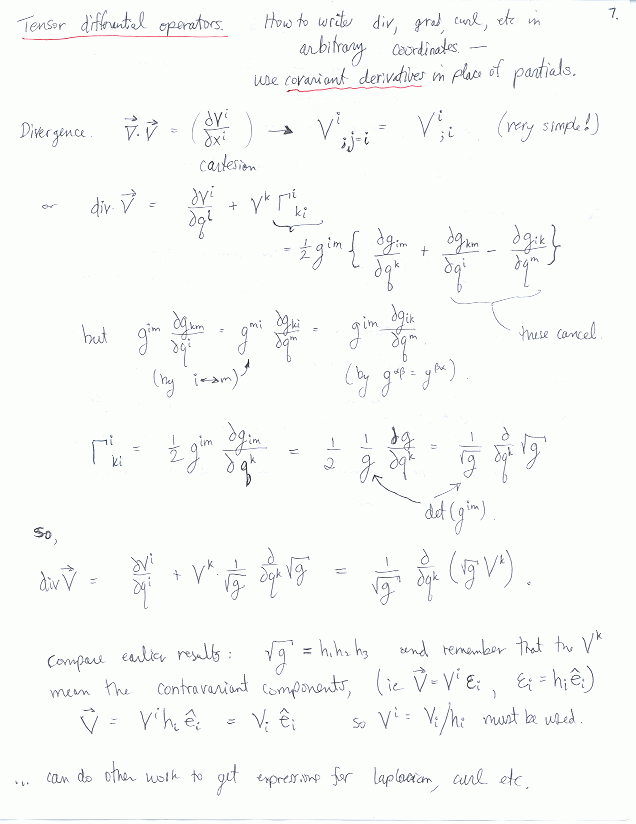 Tensor differential operators. How to write div, grad, curl, etc in 7.
arbitrary coordinates. —
use covariant derivatives in place of partials.
Divergence. ∇⃗·V⃗ = (∂Vⁱ/∂xⁱ) → Vⁱ;j=i = Vⁱ;i (very simple!)
cartesion
or div V⃗ = ∂Vⁱ/∂qⁱ + Vᵏ Γⁱki
= ½ gⁱᵐ { ∂gim/∂qᵏ + ∂gkm/∂qⁱ − ∂gik/∂qᵐ }
but gⁱᵐ ∂gkm/∂qⁱ = gᵐⁱ ∂gki/∂qᵐ = gⁱᵐ ∂gik/∂qᵐ these cancel.
(by i↔m) (by gᵅᵝ = gᵝᵅ).
Γⁱki = ½ gⁱᵐ ∂gim/∂qᵏ = ½ 1/g ∂g/∂qᵏ = 1/√g ∂/∂qᵏ √g
det(gⁱᵐ).
so,
div V⃗ = ∂Vⁱ/∂qⁱ + Vᵏ · 1/√g ∂/∂qᵏ √g = 1/√g ∂/∂qᵏ (√g Vᵏ).
Compare earlier results: √g = h₁h₂h₃ and remember that the Vᵏ
mean the contravariant components, (ie V⃗ = Vⁱ εi, εi = hi êi)
V⃗ = Vⁱ hi êi = Vi êi so Vⁱ = Vi/hi must be used.
... can do other work to get expressions for laplacian, curl etc.